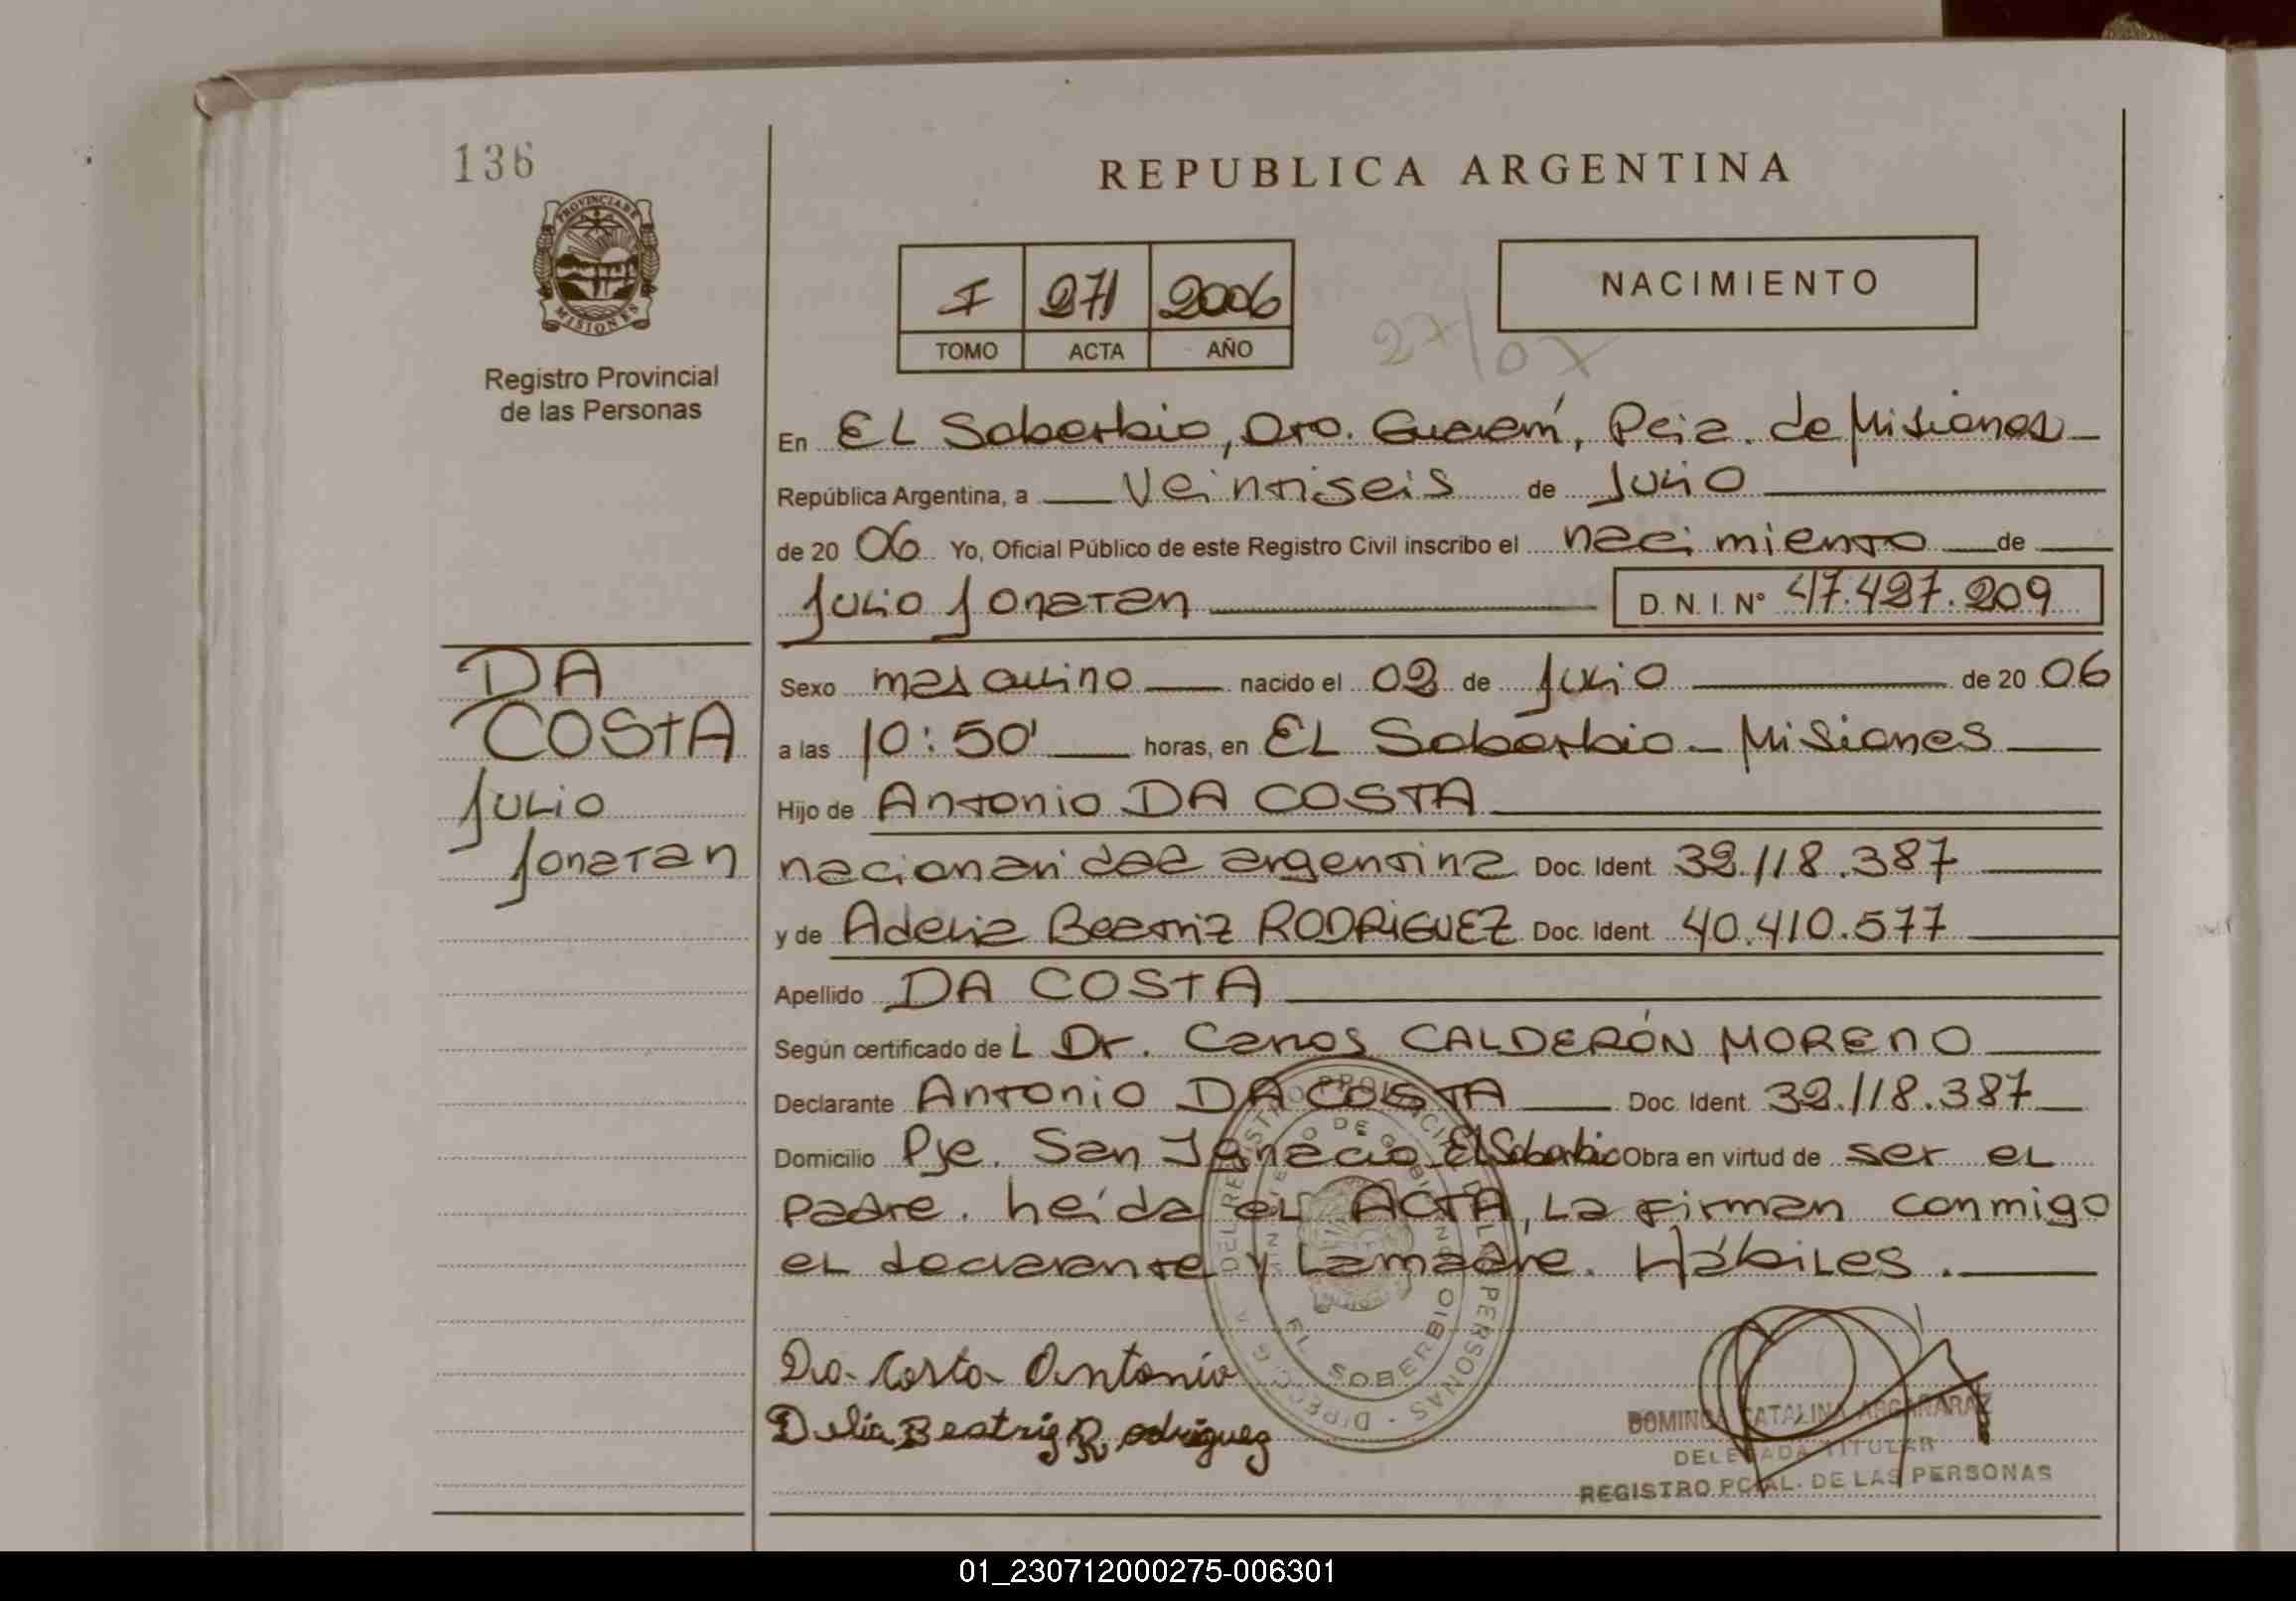 136
REPUBLICA ARGENTINA
PROVINCIA DE
MISIONES
Registro Provincial
de las Personas
I 271 2006
TOMO ACTA AÑO
NACIMIENTO
27/07
En EL Soberbio, Dto. Guaraní, Pcia. de Misiones
República Argentina, a Veintiseis de Julio
de 20 06 Yo, Oficial Público de este Registro Civil inscribo el nacimiento de
Julio Jonatan D. N. I. Nº 47.427.209
DA
COSTA
Julio
Jonatan
Sexo masculino nacido el 02 de Julio de 20 06
a las 10:50' horas, en EL Soberbio - Misiones
Hijo de Antonio DA COSTA
nacionalidad argentina Doc. Ident. 32.118.387
y de Adelia Beatriz RODRIGUEZ Doc. Ident. 40.410.577
Apellido DA COSTA
Según certificado de L Dr. Carlos CALDERÓN MORENO
Declarante Antonio DA COSTA Doc. Ident. 32.118.387
Domicilio Pje. San Ignacio El Soberbio Obra en virtud de ser el
padre. Leída el ACTA, La firman conmigo
el declarante y La madre. Hábiles.
Da Costa Antonio
Delia Beatriz Rodriguez
EL SOBERBIO
DOMINGA CATALINA ARGAÑARAZ
DELEGADA TITULAR
REGISTRO PCIAL. DE LAS PERSONAS
01_230712000275-006301